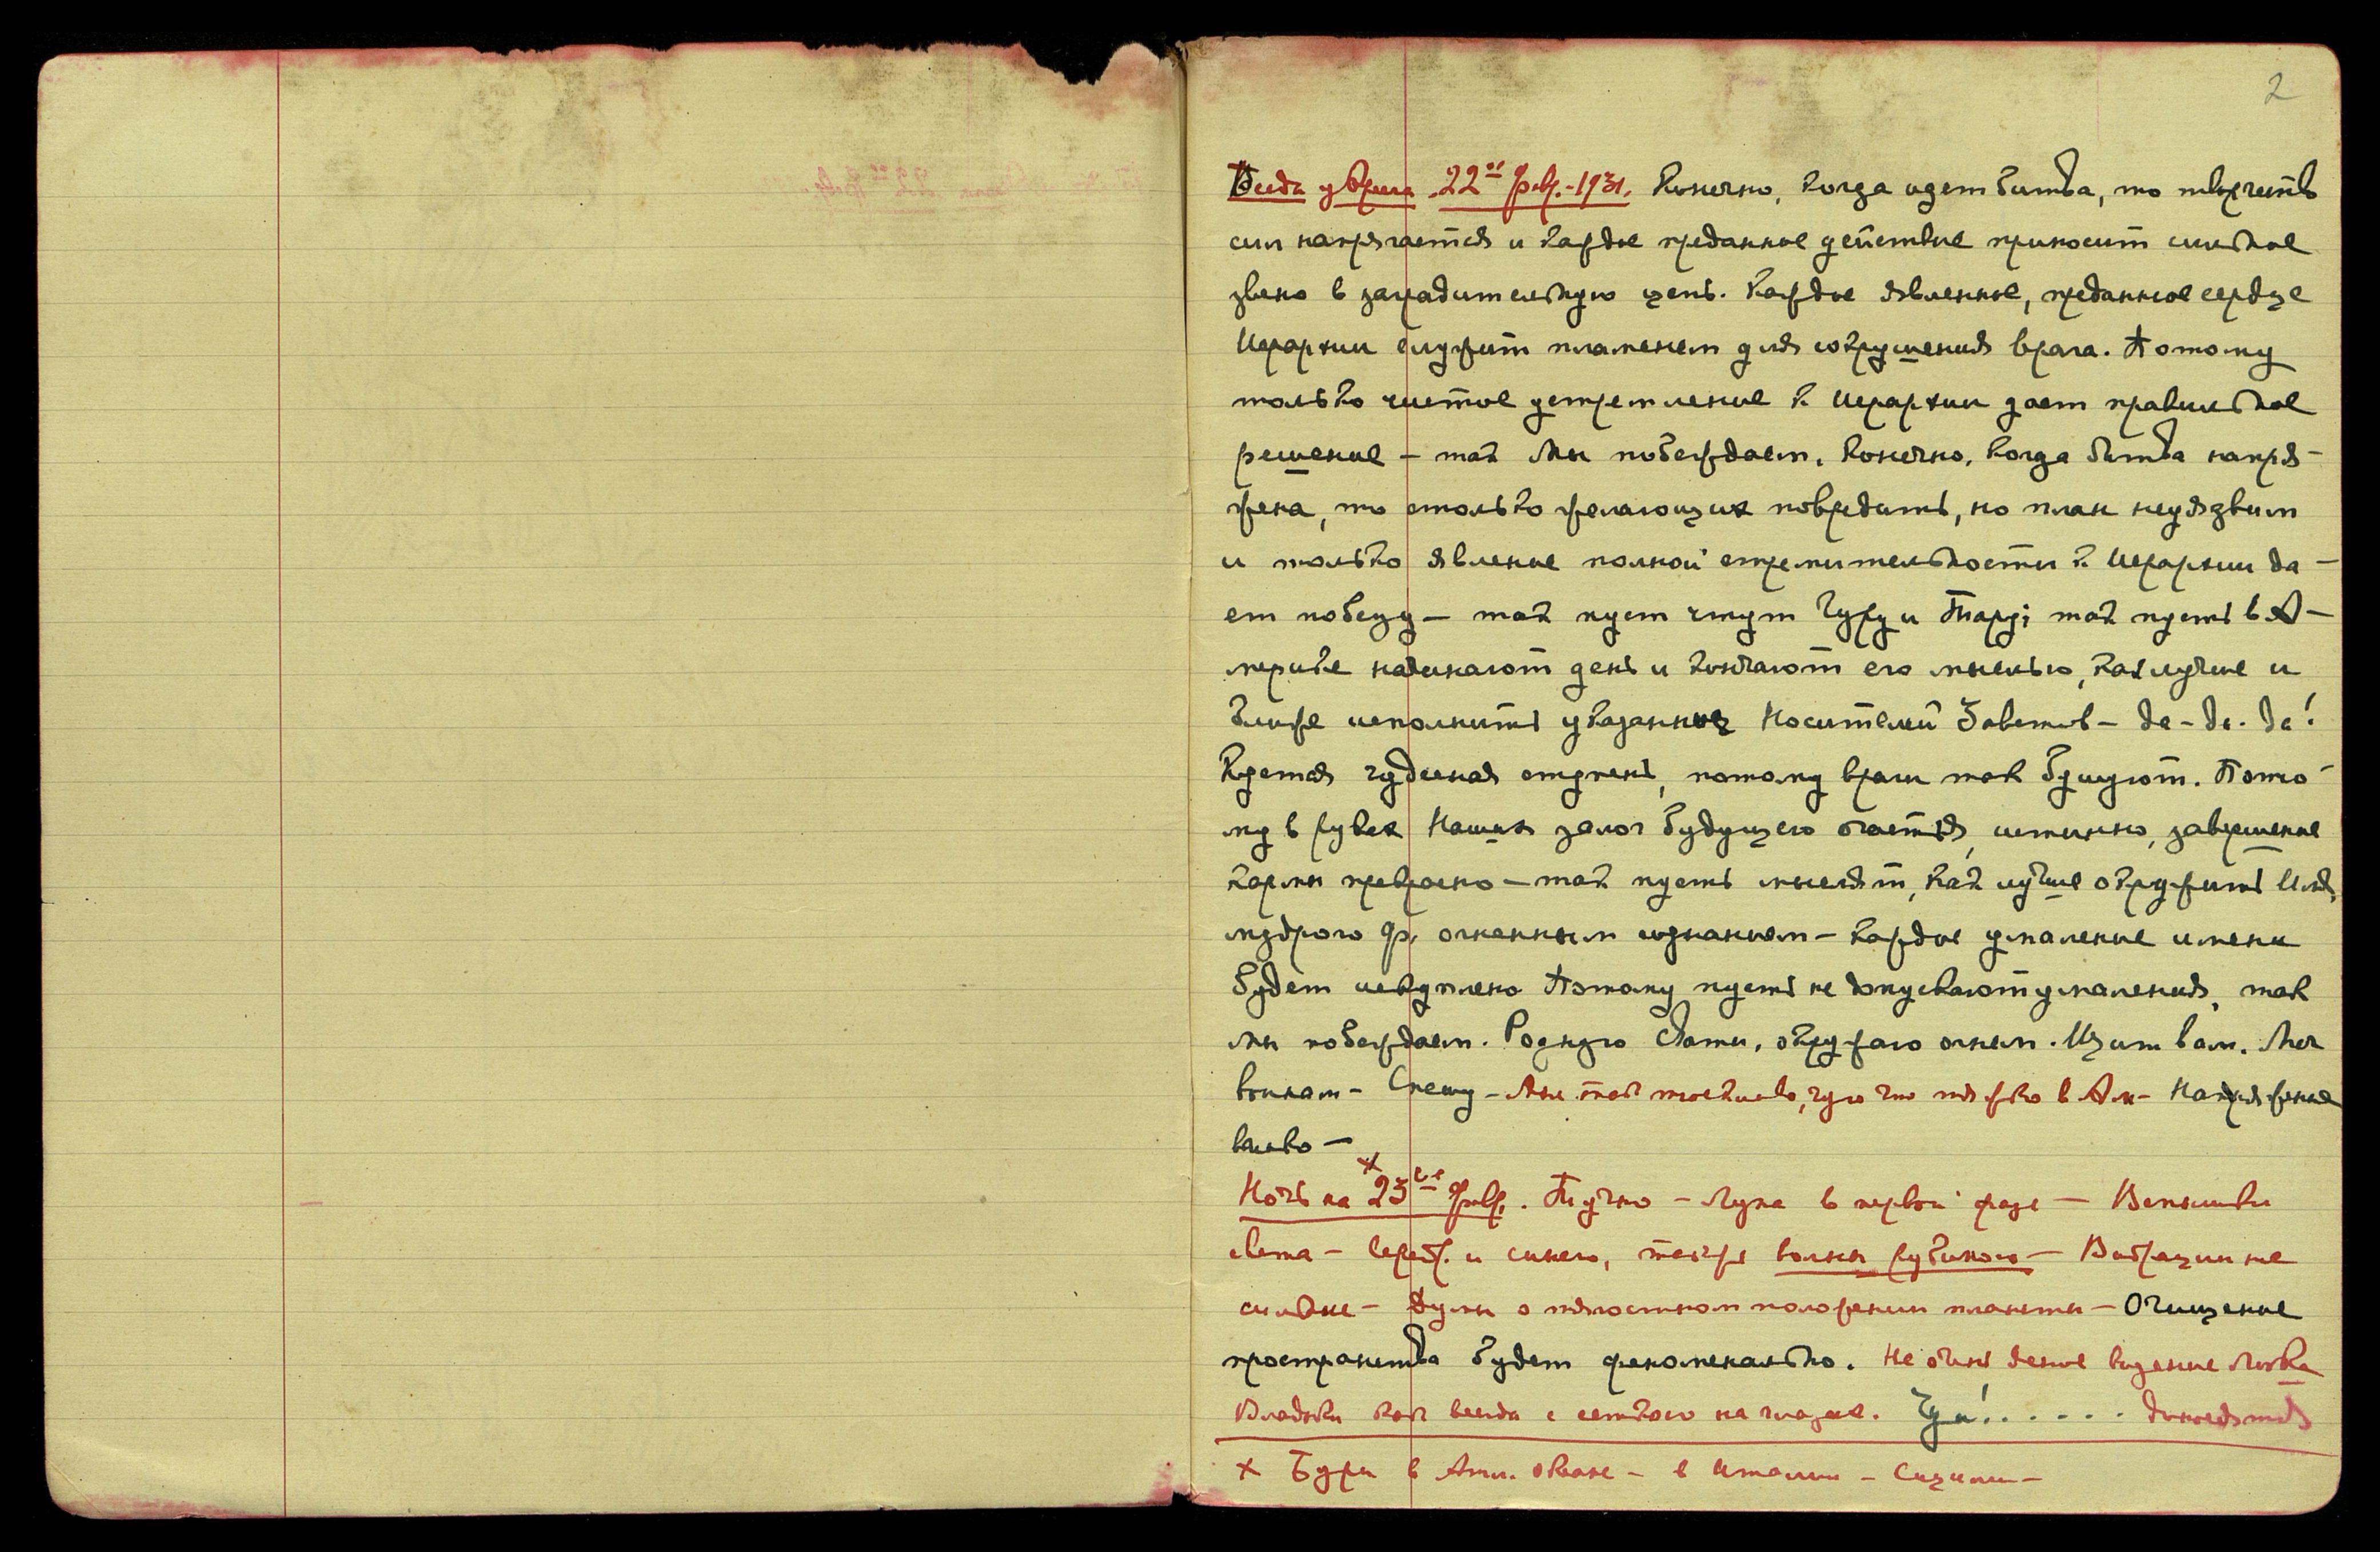 2
Беседа у Экрана 22ое Февр.-1931. Конечно, когда идет битва, то творчество
сил напрягается и каждое преданное действие приносит сильное
звено в заградительную цепь. Каждое явленное, преданное сердце
Иерархии служит пламенем для сокрушения врага. Потому
только чистое устремление к Иерархии дает правильное
решение – так Мы побеждаем. Конечно, когда битва напря-
жена, то столько желающих повредить, но план неуязвим
и только явление полной стремительности к Иерархии да-
ет победу – так пуст чтут Гуру и Тару; так пусть в А-
мерике начинают день и кончают его мыслью, как лучше и
ближе исполнить указанное Носителей Заветов – да-да-да!
Куется чудесная ступень, потому враги так бушуют. Пото-
му в руках Наших залог будущего счастья, истинно, завершение
кармы прекрасно – так пусть мыслят, как лучше окружить Имя
мудрого Ф. огненным сознанием – каждое умаление имени
будет искуплено Потому пусть не допускают умаления, так
мы побеждаем. Родную Свати, окружаю огнем. Щит вам. Меч
воинам – Спешу – Мне так тоскливо, чую что тяжко в Ам – Напряжение
велико –
Ночь на × 23ье Февр. Тучно – Луна в первой фазе – Вспышки
света – серебр. и синего, также волны рубиного – Вибрации не
сильные – Думы о тягостном положении планеты – Очищение
пространства будет феноменально. Не очень ясное видение Лика
Владыки как всегда с сеткою на глазах. Чуй! . . . . . . доносятся
× Бури в Атл. океане – в Италии – Сицилии –